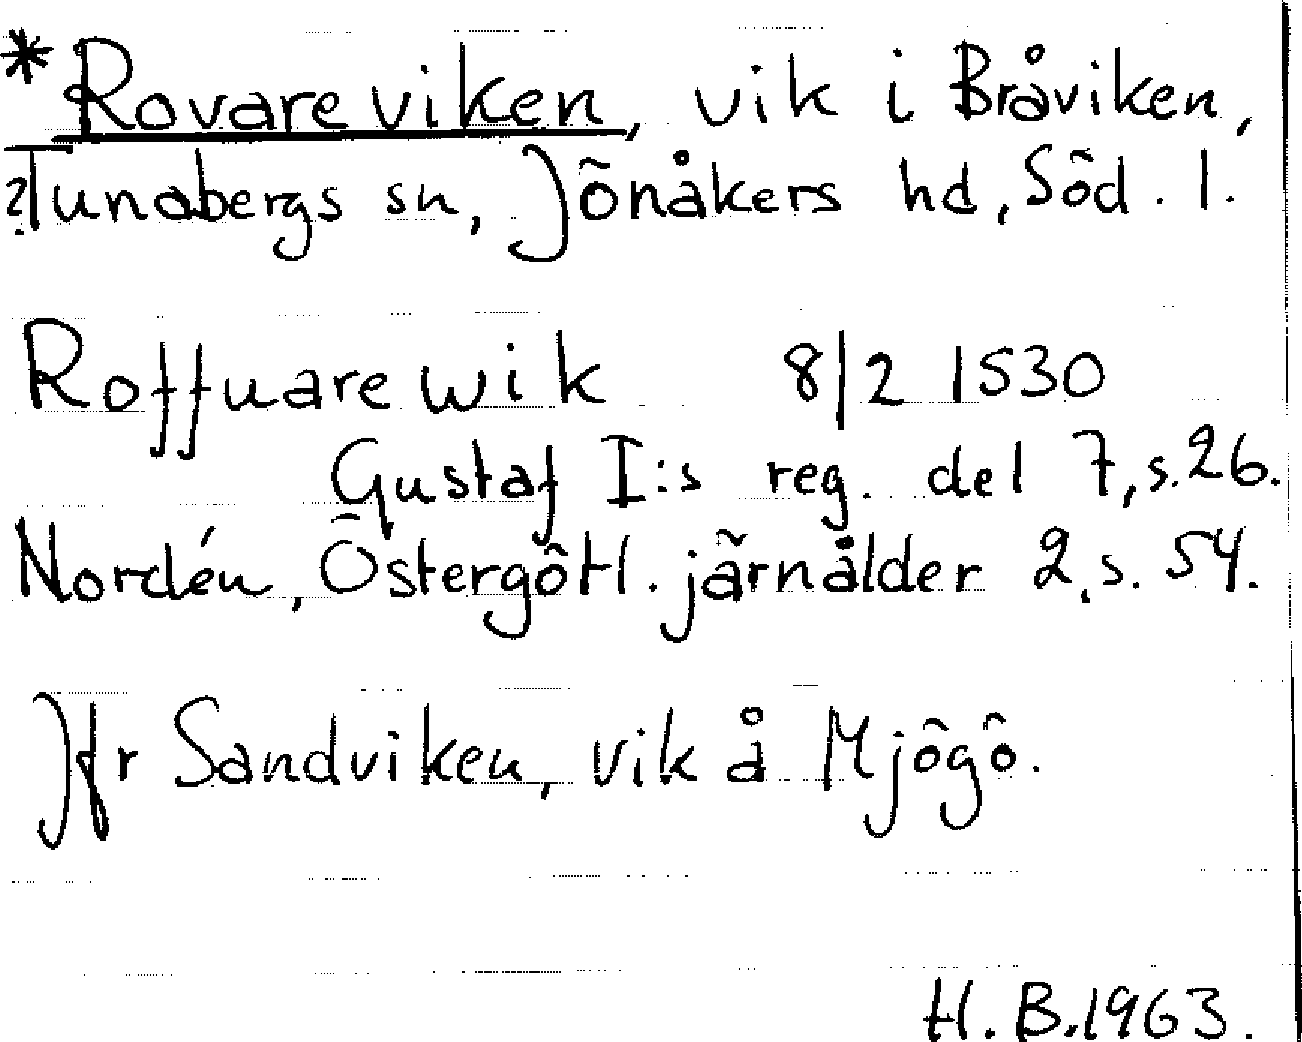 *Rovareviken, vik i Bråviken,
?Tunabergs sn, Jönåkers hd, Söd. l.
Roffuarewik 8/2 1530
Gustaf I:s reg. del 7, s. 26.
Nordén, Östergötl. järnålder 2, s. 54.
Jfr Sandviken, vik å Mjögö.
H. B. 1963.